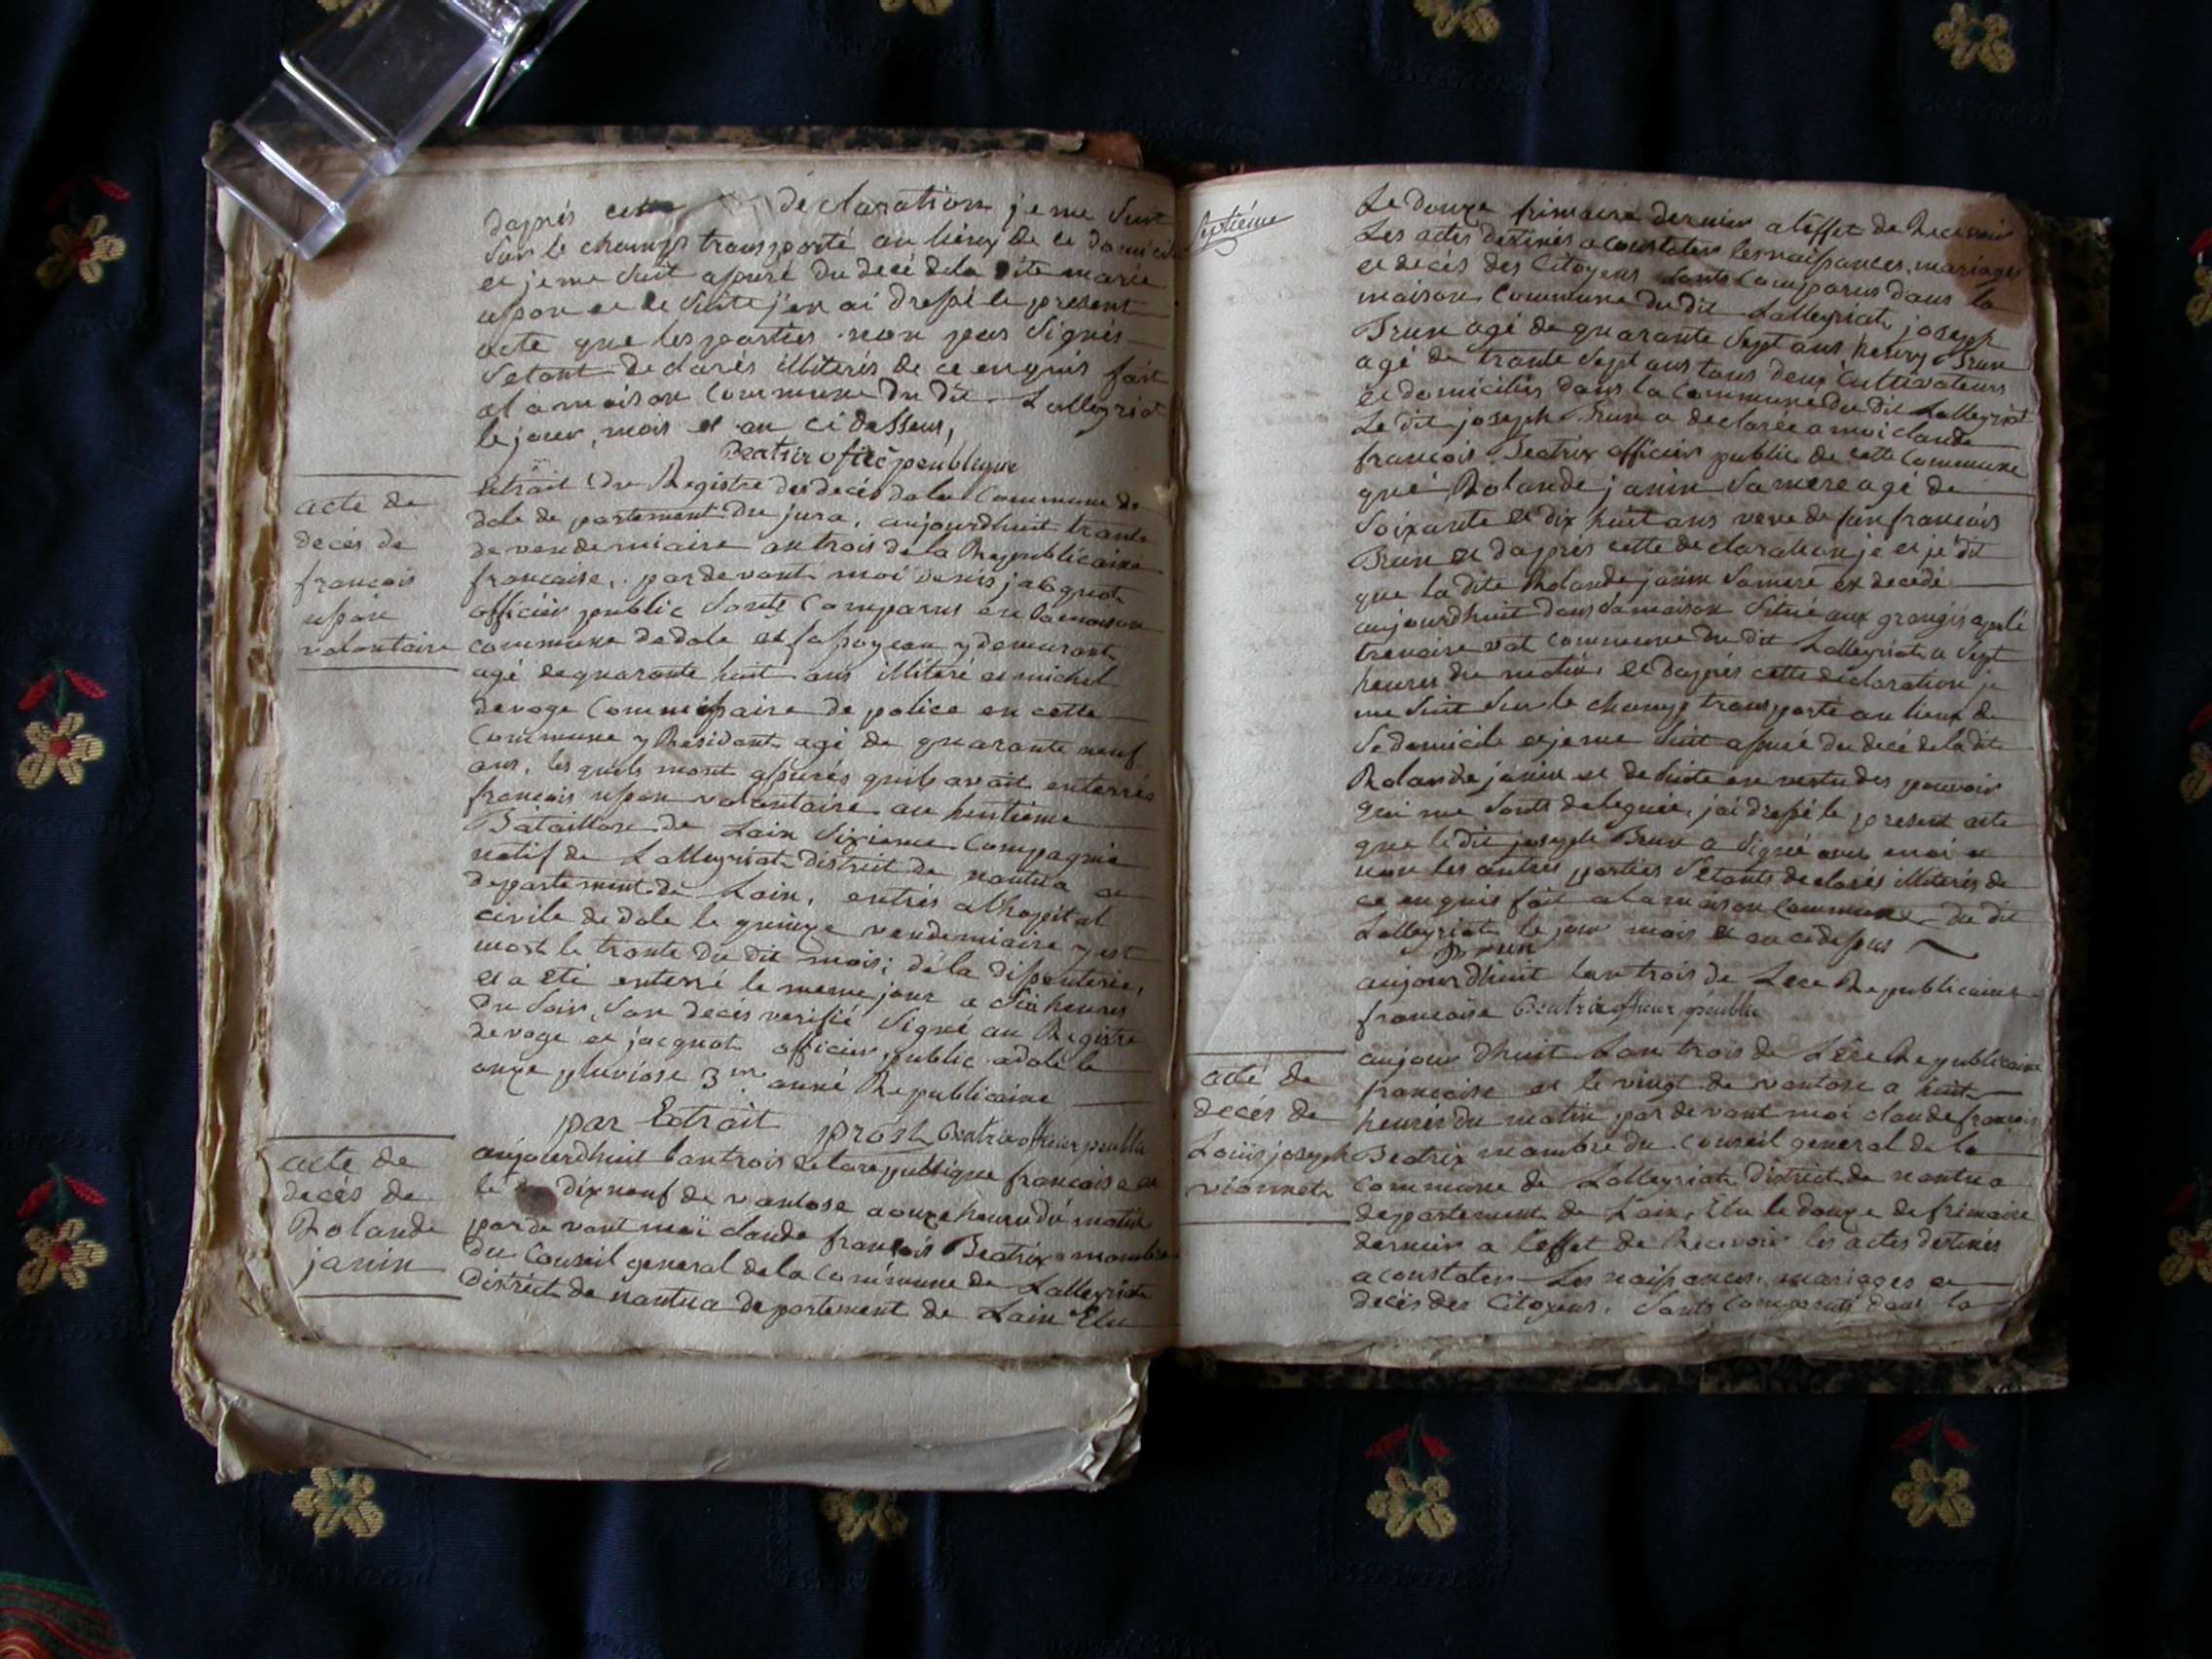 daprés cette declaration je me suit
sur le champs transporté au lieux de ce domicile
et je me suit assuré du decé de la dite marie
uson et de suite j'en ai dressé le present
acte que les parties non pas signés
setant declarés illiterés de ce enquis fait
a la maison commune du dit Lalleyriat
le jour, mois et an ci dessus,
Beatrix officié peublique
acte de
decés de
francois
volontaire
Extrait du Registre des decés de la Commune de
dole departement du jura, aujourdhuit trante
de vendemiaire an trois de la Republicaine
francaise, pardevant moi denis jacquot
officier public sonts Comparus en la maison
commune de dole et y demeurant
agé de quarante huit ans illiteré et michel
devoge Commissaire de police en cette
Commune y Residant agé de quarante neuf
ans, les quels mont assurés quils avoit enterrés
francois volontaire au huitieme
Bataillon de Lain sixieme Compagnie
natif de Lalleyriat district de nantua
departement de Lain, entrés a lhopital
civile de dole le quinze vendemiaire y est
mort le trante du dit mois; de la dissenterie,
et a eté enterré le meme jour a six heures
du soir, son decés verifié signé au Registre
devoge et jacquot officier public a dole le
onze pluviose 3me anné Republicaine
par Extrait prost Beatrix officier peublic
acte de
decés de
Rolande
janin
aujourdhuit lan trois de la republique francaise et
le dix neuf de vantose a onze heures du matin
par devant moi claude francois Beatrix mambre
du Conseil general de la commune de Lalleyriat
district de nantua departement de Lain Elu
septiéme
Le douze frimaire dernier a leffet de Recevoir
Les actes destinés a constater les naissances, mariages
et decés des Citoyens sonts Comparus dans la
maison commune du dit Lalleyriat, joseph
Brun agé de quarante sept ans henry Brun
agé de trante sept ans tous deux cultivateurs
et domiciliés dans la Commune du dit Lalleyriat
Le dit joseph Brun a declarée a moi claude
francois Beatrix officier public de cette Commune
que Rolande janin sa mere agé de
soixante et dix huit ans veve de fun francois
Brun et daprés cette declaration je et je dit
que la dite Rolande janin sa mere et decedé
aujourdhuit dans sa maison situé aux granges apelé
commune du dit Lalleyriat a sept
heures du matin et daprés cette declaration je
me suit sur le champs transporté au lieux de
se domicile et je me suit assuré du decé de la dite
Rolande janin et de suite en vertu des pouvoir
qui me sonts deleguée, jai dressé le present acte
que le dit joseph Brun a signé avec moi et
non les autres parties setants declarés illiterés de
ce enquis fait a la maison commune du dit
Lalleyriat le jour mois et an ci dessus
Brun
aujourdhuit lan trois de Lere Republicaine
francaise Beatrix officier peublic
acte de
decés de
Louis joseph
vionnet
aujourdhuit Lan trois de Lére Republicaine
francaise et le vingt de vantose a huit
heures du matin par devant moi claude francois
Beatrix mambre du conseil general de la
commune de Lalleyriat District de nantua
departement de Lain, Elu le douze de frimaire
dernier a leffet de Recevoir les actes destinés
a constater Les naissances, mariages et
decés des Citoyens, sonts comparuts dans la